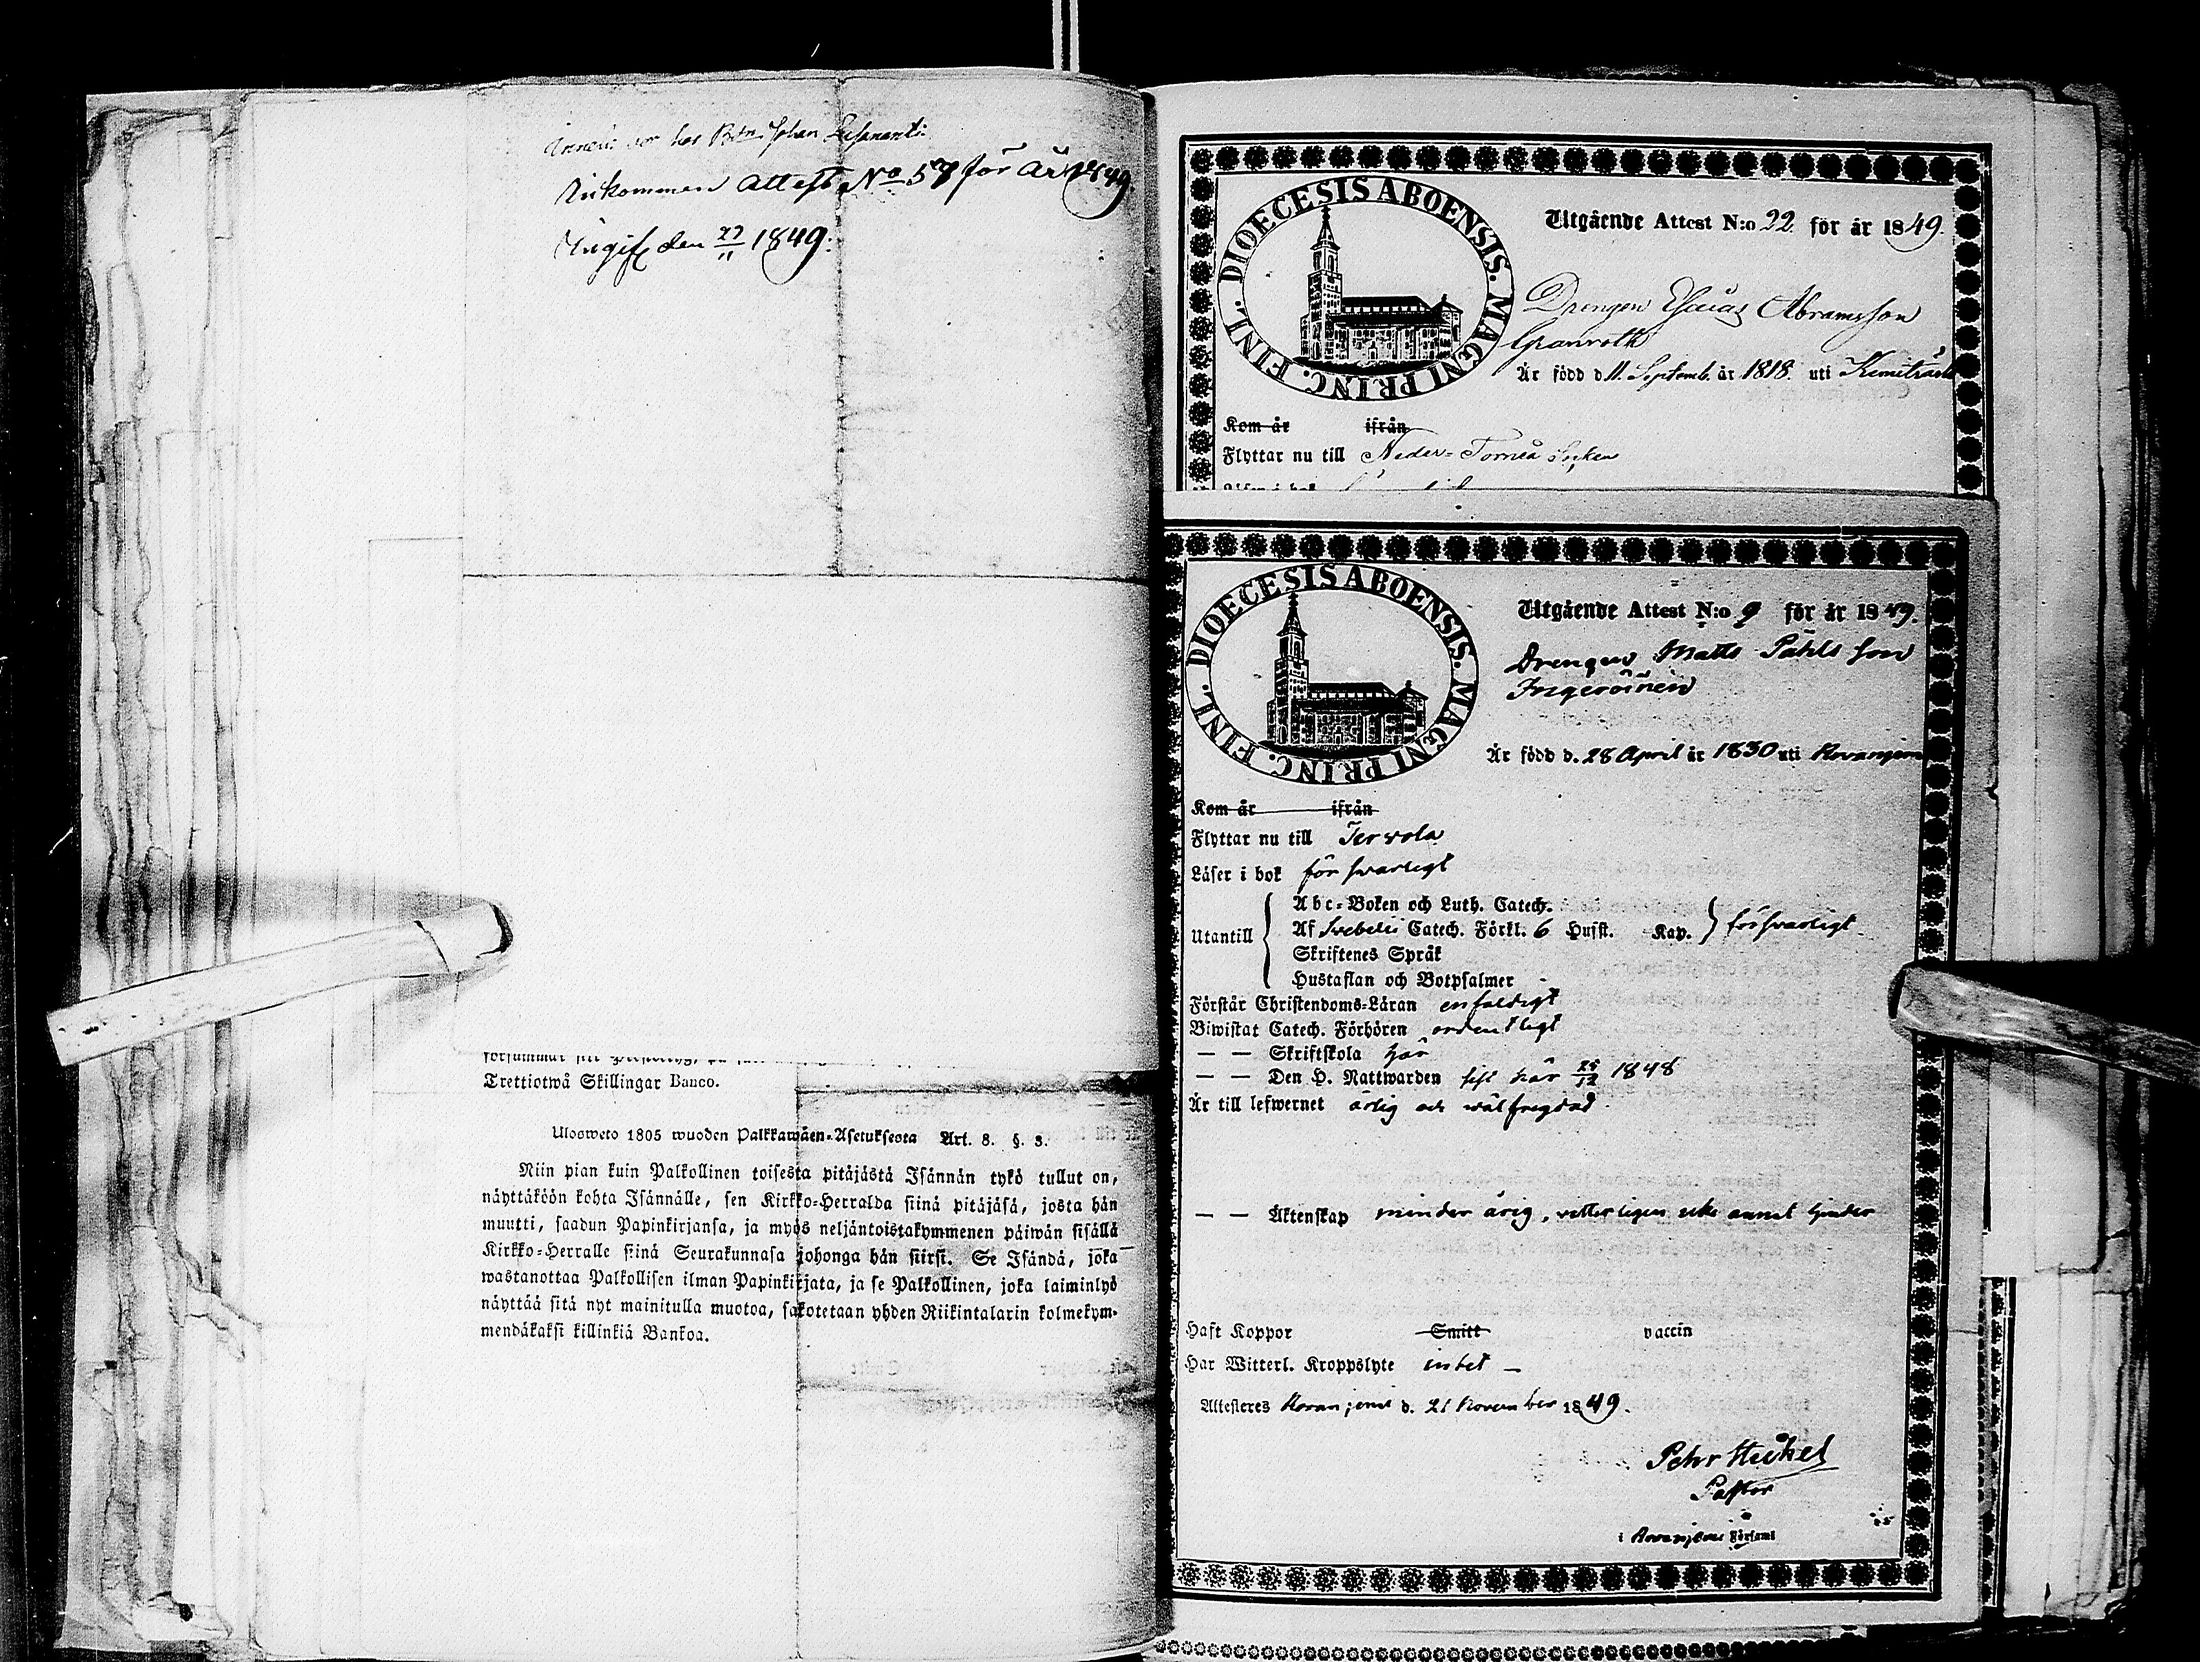 Inkommen Attest No 57 för år 1849.
Ingifv. den 27/11 1849.
Trettiotwå Skillingar Banco.
Ulosweto 1805 wuoden Palkkawäen-Asetuksesta Art. 8. §. 3.
Niin pian kuin Palkollinen toisesta pitäjästä Isännän tykö tullut on,
näyttäköön kohta Isännälle, sen Kirkko-Herralda siinä pitäjäsä, josta hän
muutti, saadun Papinkirjansa, ja myös neljäntoistakymmenen päiwän sisällä
Kirkko-Herralle siinä Seurakunnasa johonga hän siirsi. Se Isändä, joka
wastanottaa Palkollisen ilman Papinkirjata, ja se Palkollinen, joka laiminlyö
näyttää sitä nyt mainitulla muotoa, sakotetaan yhden Riikintalarin kolmekym-
mendäkaksi killinkiä Bankoa.
DIOECESIS ABOENSIS. MAGNI PRINC. FINL.
Utgående Attest N:o 22 för år 1849.
Drengen Esaias Abramsson
Granroth
Är född d. 11. Septemb. år 1818. uti Kemiträsk
Kom år ifrån
Flyttar nu till Neder-Torneå Socken
DIOECESIS ABOENSIS. MAGNI PRINC. FINL.
Utgående Attest N:o 9 för år 1849.
Drengen Matts Påhls son
Ingeröinen
Är född d. 28 April år 1830 uti Rovaniemi
Kom år ifrån
Flyttar nu till Tervola
Läser i bok försvarligt
Utantill
Abc-Boken och Luth. Catech.
Af Svebelii Catech. Förkl. 6 Hufst. Kap. försvarligt
Skriftenes Språk
Hustaflan och Botpsalmer
Förstår Christendoms-Läran enfaldigt
Biwistat Catech. Förhören ordentligt
— — Skriftskola här
— — Den H. Nattwarden sist här 25/12 1848
Är till lefwernet ärlig och wälfregdad
— — Äktenskap minder årig, vetterligen utan annat hinder
Haft Koppor Smitt vaccin
Har Witterl. Kroppslyte intet —
Attesteras Rovaniemi d. 21 November 1849.
Pehr Heikel
Pastor
i Rovaniemi Församl